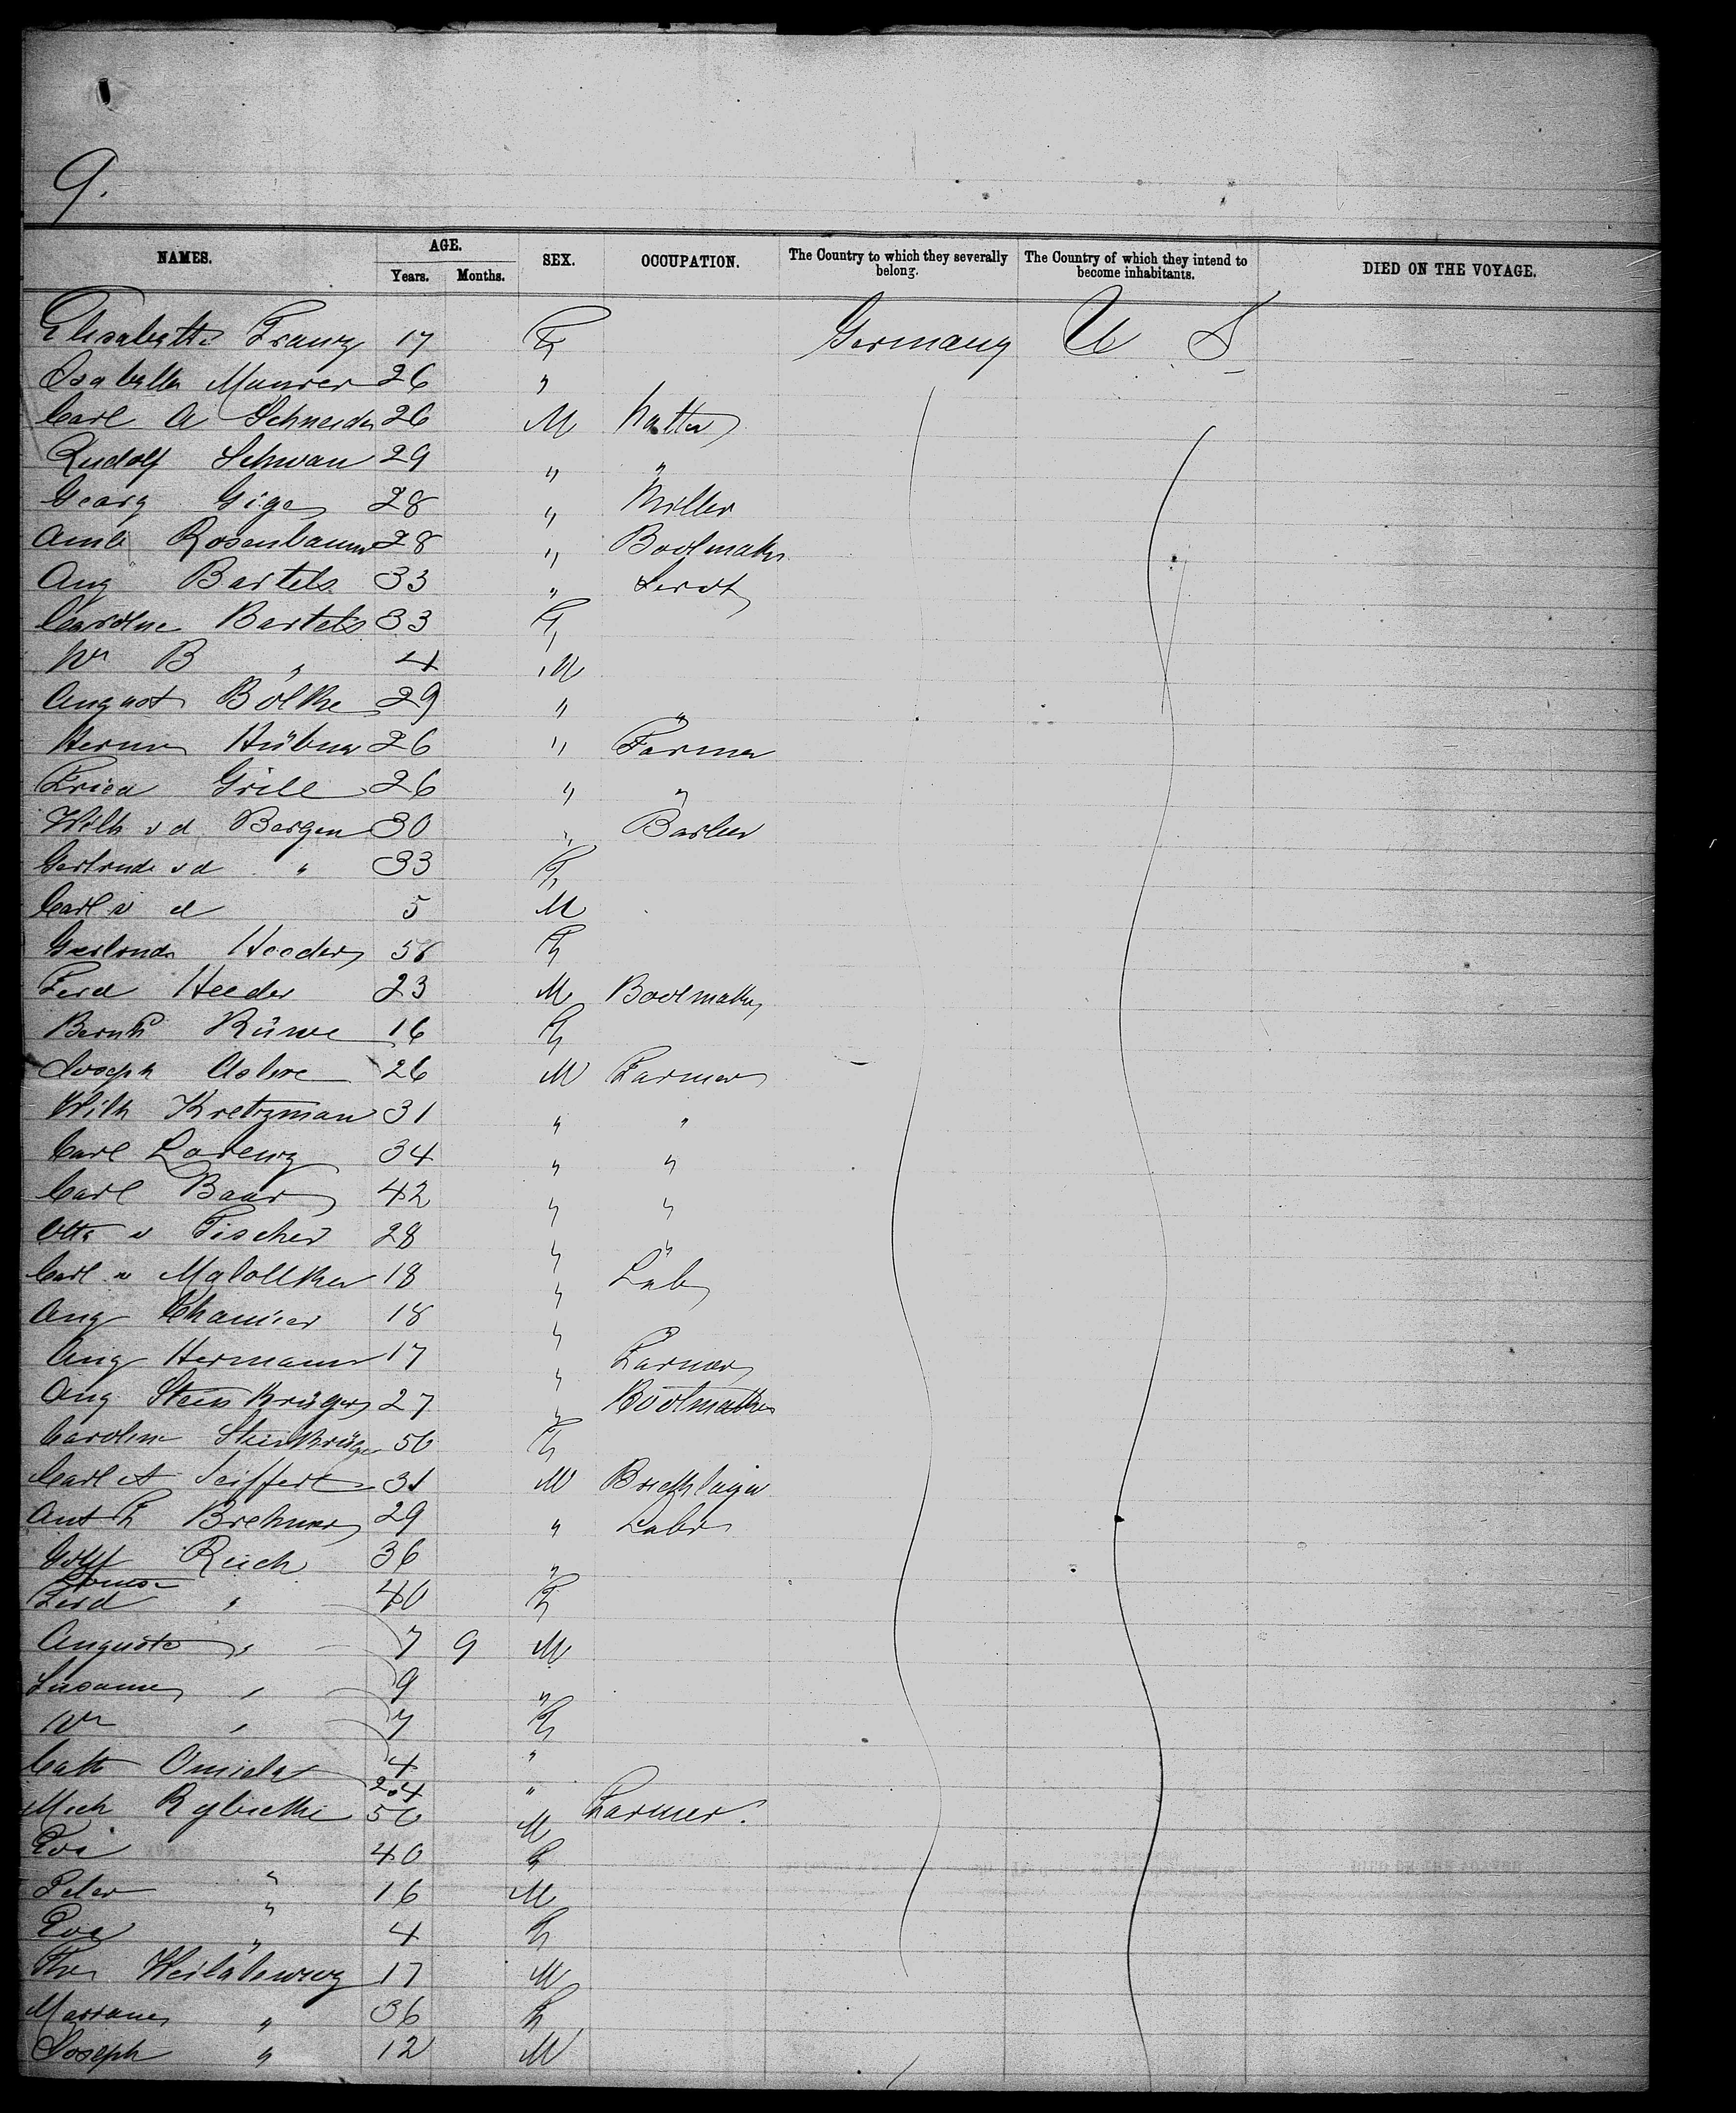 9.
NAMES. AGE. Years. Months. SEX. OCCUPATION. The Country to which they severally belong. The Country of which they intend to become inhabitants. DIED ON THE VOYAGE.
Elisabetha Franz 17 F Germany U S
Isabella Maurer 26 "
Carl A Schneider 26 M hatter
Rudolf Schwan 29 " "
Georg 28 " Miller
Rosenbaum 28 " Bootmaker
Aug Bartels 33 "
Caroline Bartels 33 F
Wm B " 4 M
August Bölke 29 " "
Herm Hübner 26 " Farmer
Grill 26 " "
Wilh v d Bergen 30 " Barber
Gertrude v d " 33 F
Carl v d 5 M
Gertrude Heeder F
Ferd Heeder 23 M Bootmaker
Bernh Rüwe 16 F
Joseph 26 M Farmer
Wilh Kretzman 31 " "
Carl Lorenz 34 " "
Carl Baar 42 " "
Otto v Fischer 28 " "
Carl v 18 " Lab
Aug 18 " "
Aug Hermann 17 " Farmer
Aug Steinkrüger 27 " Bootmaker
Caroline Steinkrüger 50 F
Carl A Seiffert 31 M Bricklayer
Brehmer 29 " Labr
Reich 36 "
Ferd " 40 F
Auguste " 7 9 M
Susanne " 9 "
Wm " 7 F
Cath 4 "
24 "
Mich 50 M Farmer.
Eva 40 F
Peter " 16 M
Eva " 4 F
17 M
Marianne " 36 F
Joseph " 12 M